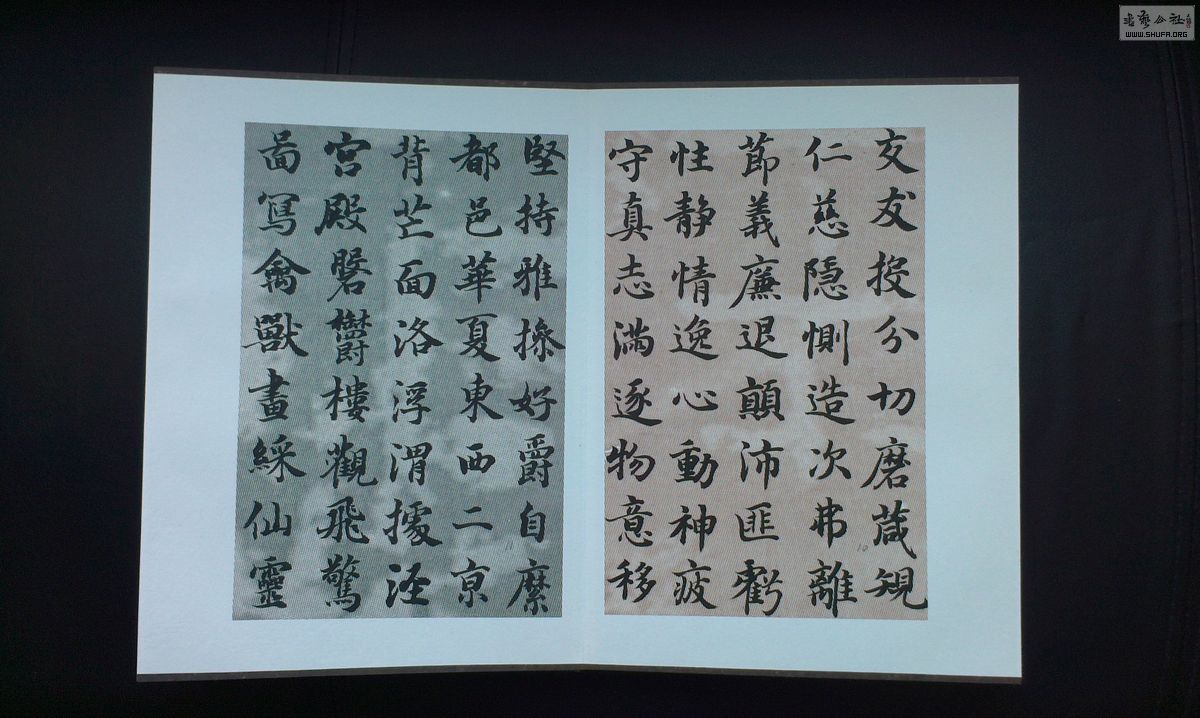 交友投分切磨葴規
仁慈隱惻造次弗離
節義廉退顛沛匪虧
性静情逸心動神疲
守真志滿逐物意移
堅持雅操好爵自縻
都邑華夏東西二京
背芒面洛浮渭據涇
宮殿磐鬱樓觀飛驚
啚寫禽獸畫綵仙靈
10
11
書藝公社
WWW.SHUFA.ORG